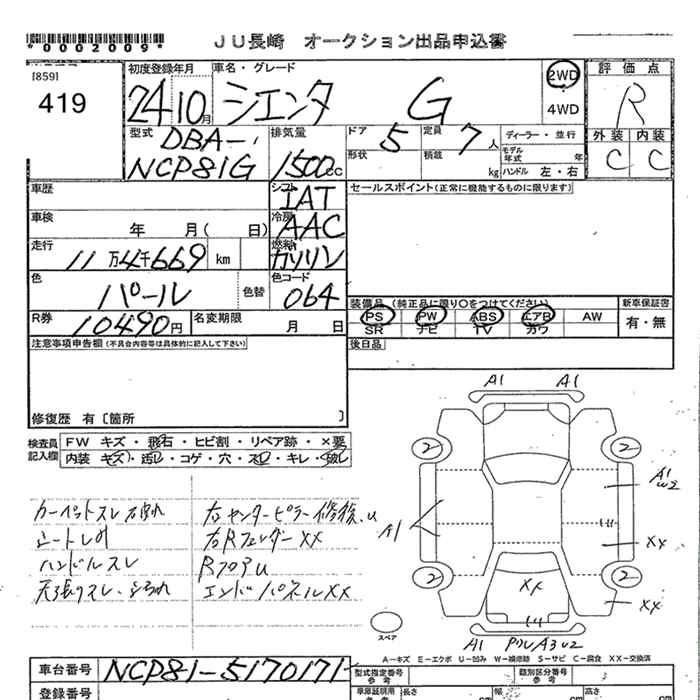 *0002009*
JU長崎 オークション出品申込書
[859]
419
初度登録年月
24 10月
車名・グレード
シエンタ G
2WD
4WD
評価点
R
外装 内装
C C
型式
DBA-
NCP81G
排気量
1500cc
ドア 5
定員 7人
形状
積載 kg
ディーラー・並行
モデル年式 年
ハンドル 左・右
車歴
シフト
IAT
セールスポイント(正常に機能するものに限ります)
車検 年 月( 日)
冷房
AAC
走行
11万4千669 km
燃料
ガソリン
色
パール
色替
色コード
064
装備品 (純正品に限り○をつけてください)
新車保証書
PS PW ABS エアB AW
SR ナビ TV カワ
有・無
R券
10490円
名変期限 月 日
後日品
注意事項申告欄(不具合内容等は具体的に記入して下さい)
修復歴 有〔箇所 〕
検査員記入欄
FW キズ・飛石・ヒビ割・リペア跡・×要
内装 キズ・汚レ・コゲ・穴・スレ・キレ・破レ
カーペットスレ
シートレバ
ハンドルスレ
天張りスレ
右センターピラー修復.u
右Rフェンダー XX
RフロアU
エンドパネルXX
A1 A1
2 2
A1
A1
W2
XX
XX
2 2
XX
スペア
A1
A-キズ E-エクボ U-凹み W-補修跡 S-サビ C-腐食 XX-交換済
車台番号
NCP81-5170171
登録番号
型式指定番号
参考
類別区分番号
参考
車庫証明用
参考
長さ cm
幅 cm
高さ